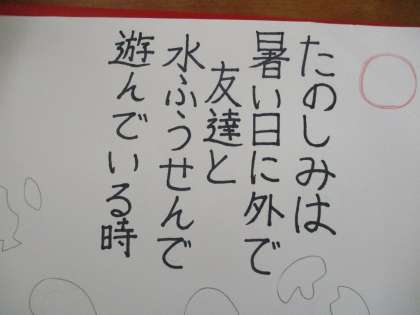 たのしみは
暑い日に外で
友達と
水ふうせんで
遊んでいる時